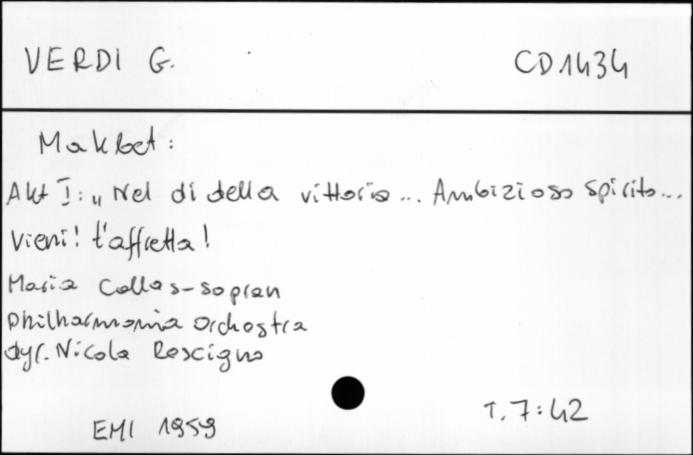 VERDI G.
CD1434
Makbet:
Akt I: „Nel di della vittoria... Ambizioso spirito...
Vieni! t'affretta!
Maria Callas-sopran
Philharmonia Orchostra
dyr. Nicola Rescigno
EMI 1959
T. 7:42